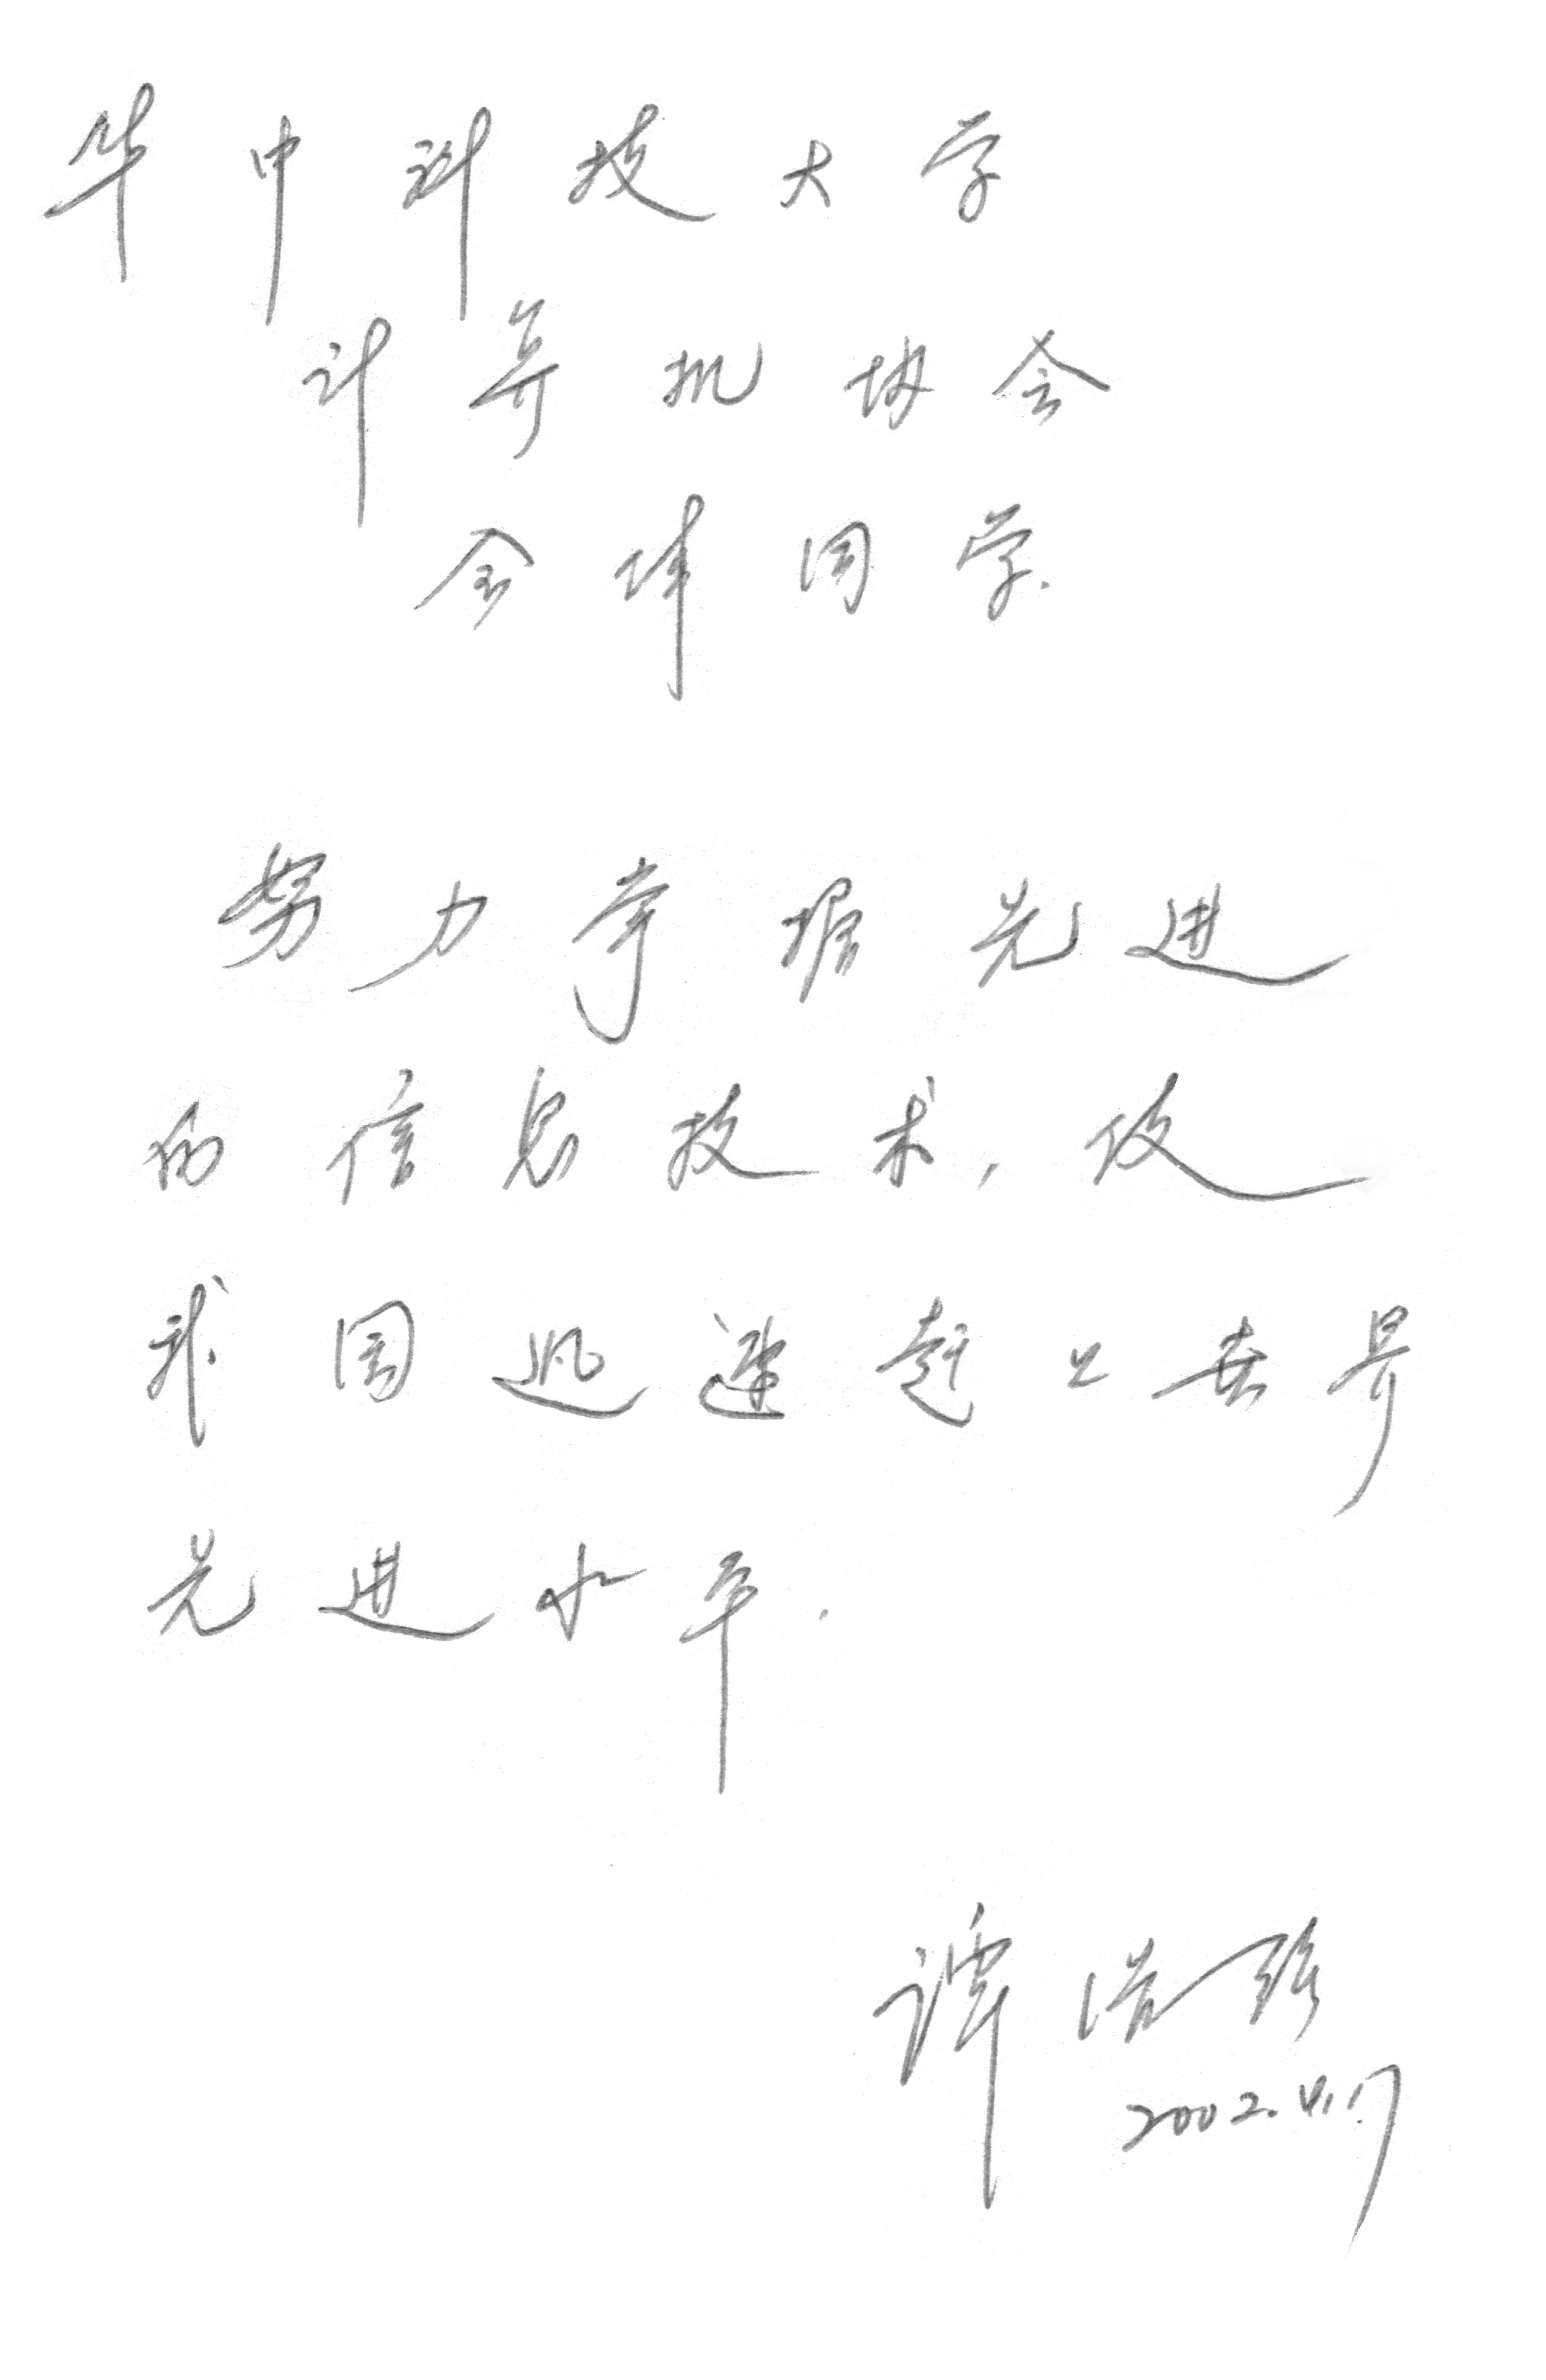 华中科技大学
计算机协会
全体同学.
努力掌握先进
的信息技术,使
我国迅速赶上世界
先进水平.
谭浩强
2002.4.17